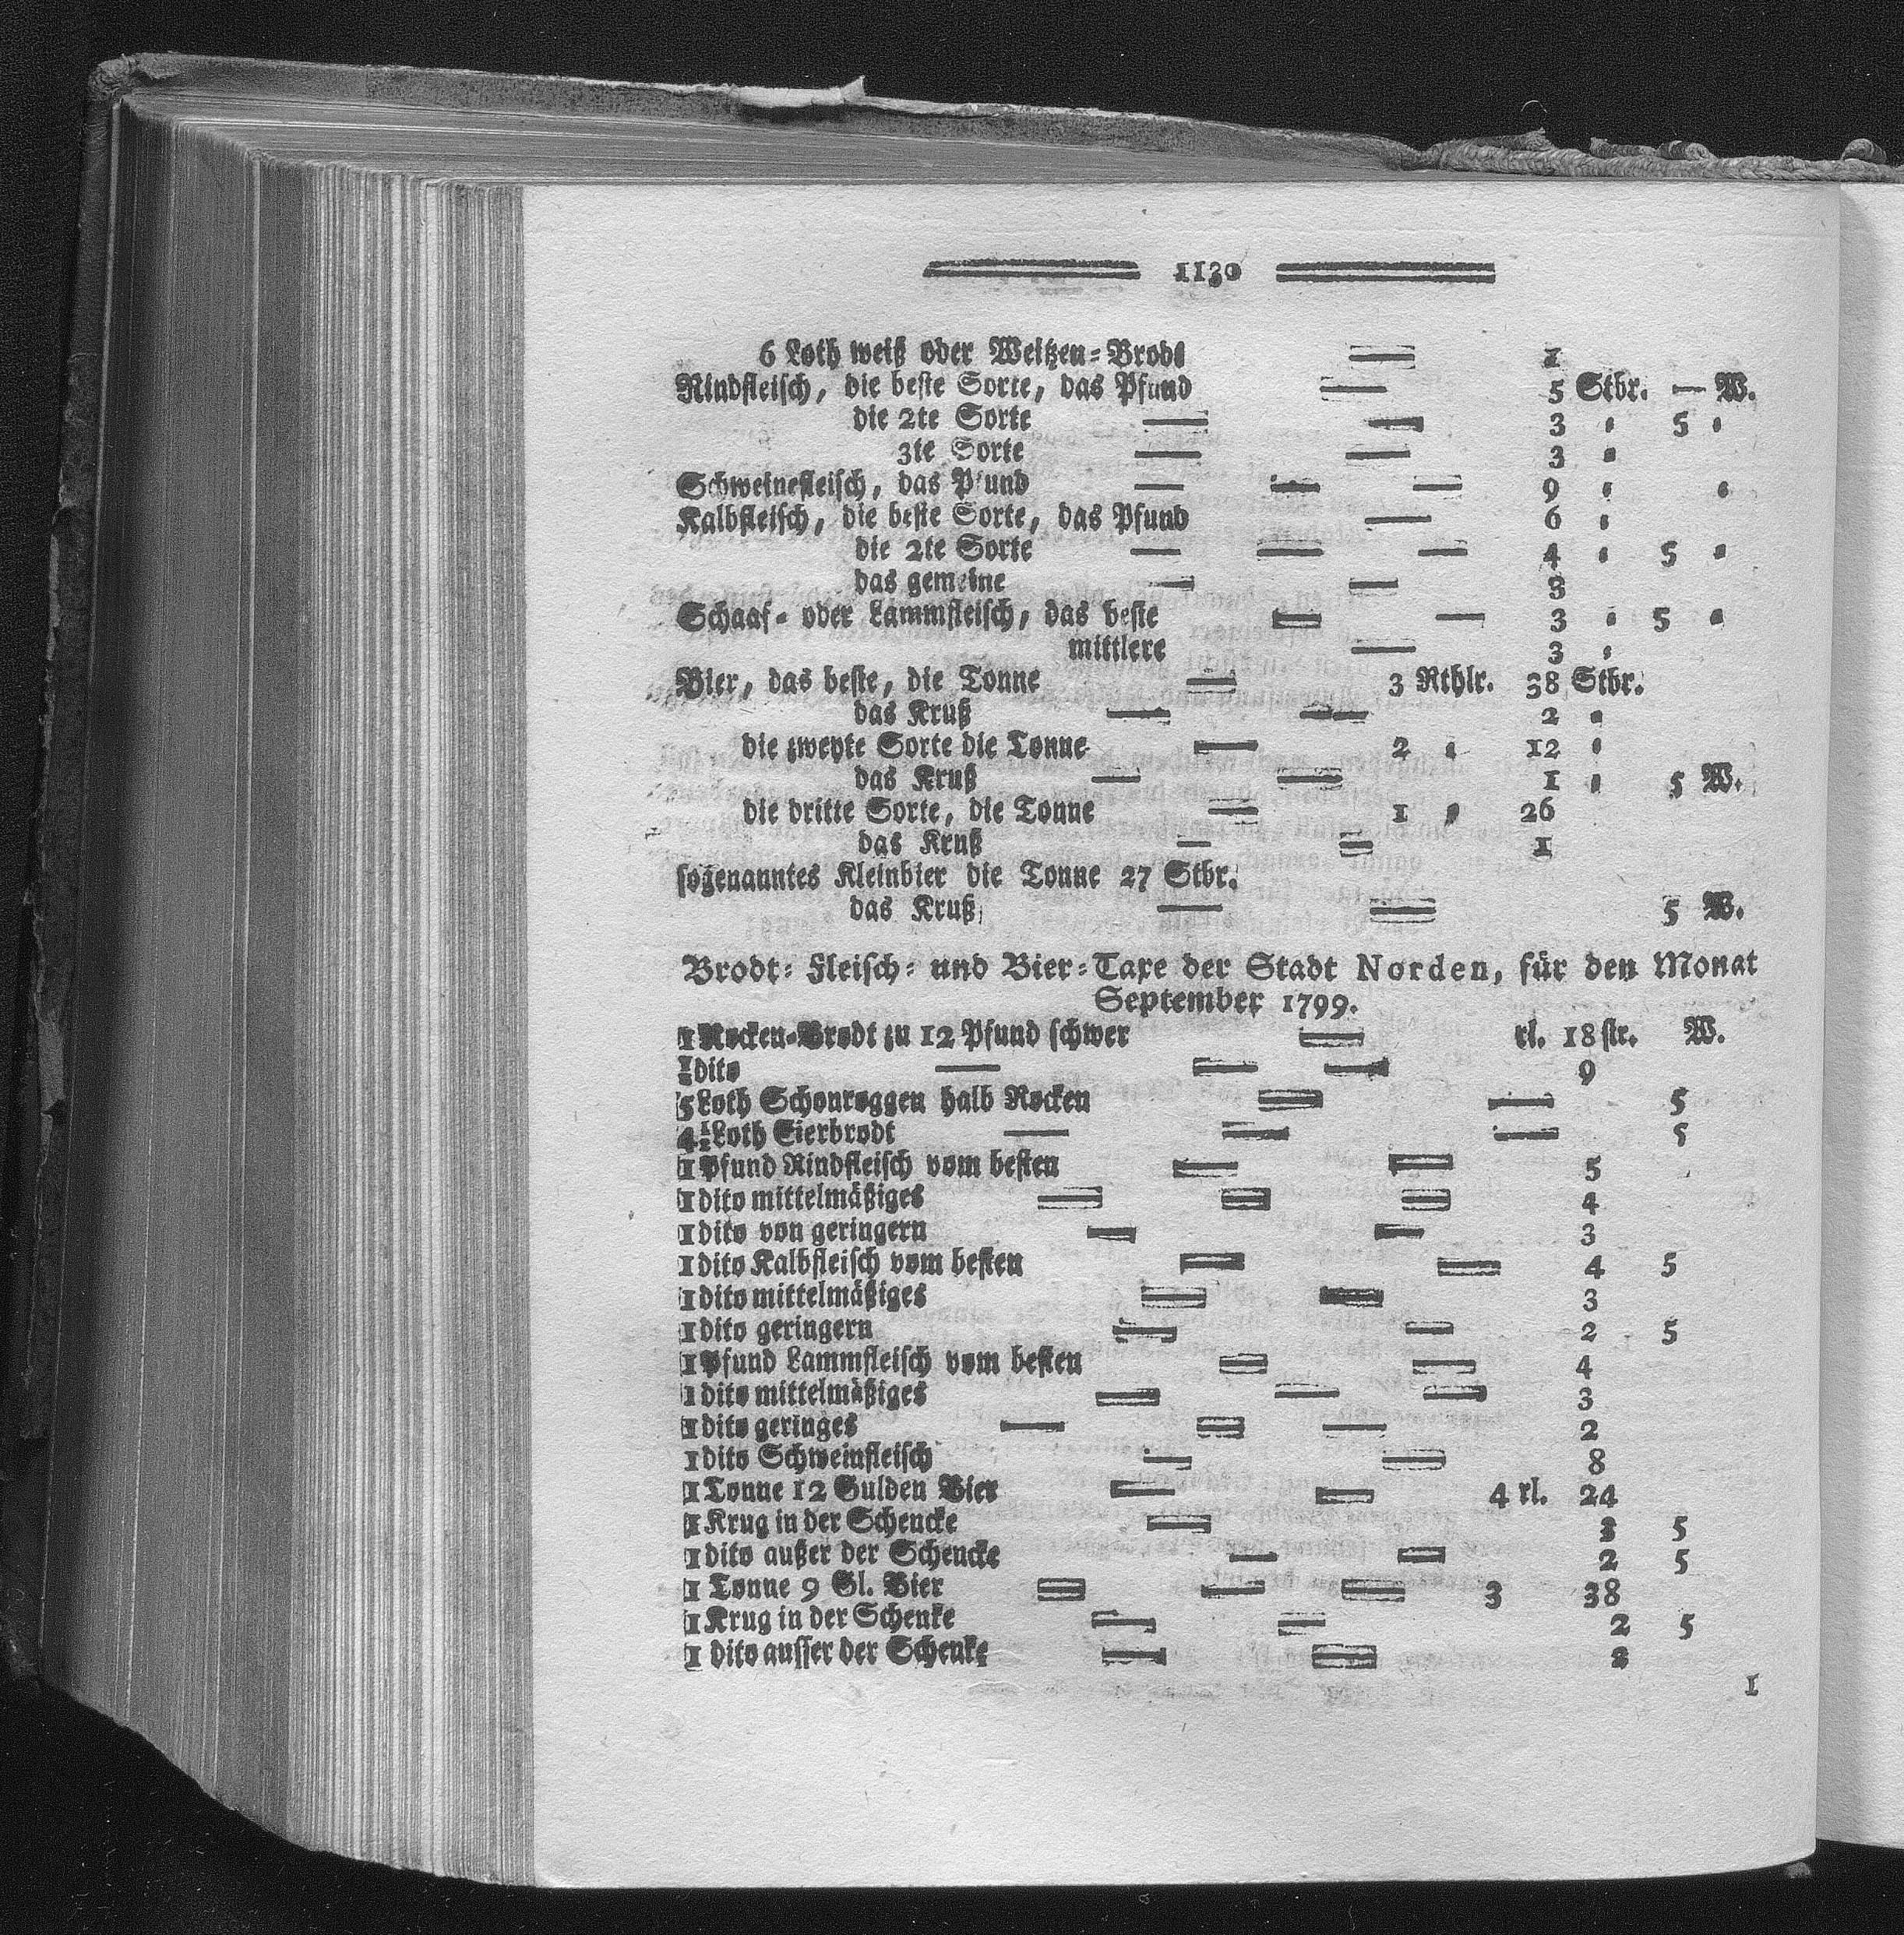 1130
6 Loth weiß oder Weitzen-Brodt — 1
Rindfleisch, die beste Sorte, das Pfund — 5 Stbr. — W.
die 2te Sorte — — 3 " 5 "
3te Sorte — — 3 "
Schweinefleisch, das Pfund — — — 9 " "
Kalbfleisch, die beste Sorte, das Pfund — 6 "
die 2te Sorte — — — 4 " 5 "
das gemeine — — 3
Schaaf- oder Lammfleisch, das beste — — 3 " 5 "
mittlere — 3 "
Bier, das beste, die Tonne — 3 Rthlr. 38 Stbr.
das Kruß — — 2 "
die zweyte Sorte die Tonne — 2 " 12 "
das Kruß — — 1 " 5 W.
die dritte Sorte, die Tonne — 1 " 26
das Kruß — — 1
sogenanntes Kleinbier die Tonne 27 Stbr.
das Kruß — — 5 W.
Brodt- Fleisch- und Bier-Taxe der Stadt Norden, für den Monat
September 1799.
1 Rocken-Brodt zu 12 Pfund schwer — rl. 18 str. W.
½ dito — — — 9
5 Loth Schonroggen halb Rocken — — 5
4½ Loth Eierbrodt — — — 5
1 Pfund Rindfleisch vom besten — — 5
1 dito mittelmäßiges — — — 4
1 dito von geringern — — 3
1 dito Kalbfleisch vom besten — — 4 5
1 dito mittelmäßiges — — 3
1 dito geringern — — 2 5
1 Pfund Lammfleisch vom besten — — 4
1 dito mittelmäßiges — — — 3
1 dito geringes — — — 2
1 dito Schweinfleisch — — 8
1 Tonne 12 Gulden Bier — — 4 rl. 24
1 Krug in der Schencke — 5
1 dito außer der Schencke — — 2 5
1 Tonne 9 Gl. Bier — — — 3 38
1 Krug in der Schenke — — 2 5
1 dito ausser der Schenke — — 2
1